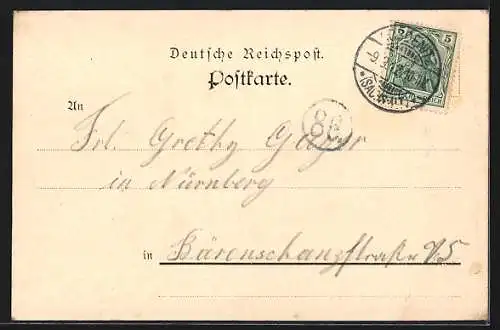 Deutsche Reichspost.
Postkarte.
5
An
Frl. Grethy
88
in Nürnberg
in Bärenschanzstraße 75